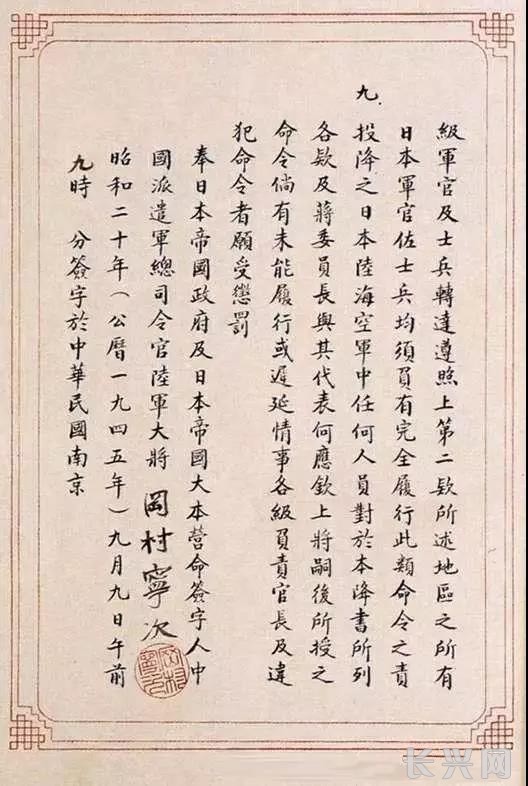 級軍官及士兵轉達遵照上第二欵所述地區之所有
日本軍官佐士兵均須負有完全履行此類命令之責
九、投降之日本陸海空軍中任何人員對於本降書所列
各欵及蔣委員長與其代表何應欽上將嗣後所授之
命令倘有未能履行或遲延情事各級負責官長及違
犯命令者願受懲罰
奉日本帝國政府及日本帝國大本營命簽字人中
國派遣軍總司令官陸軍大將 岡村寧次
昭和二十年(公曆一九四五年)九月九日午前
九時 分簽字於中華民國南京
长兴网